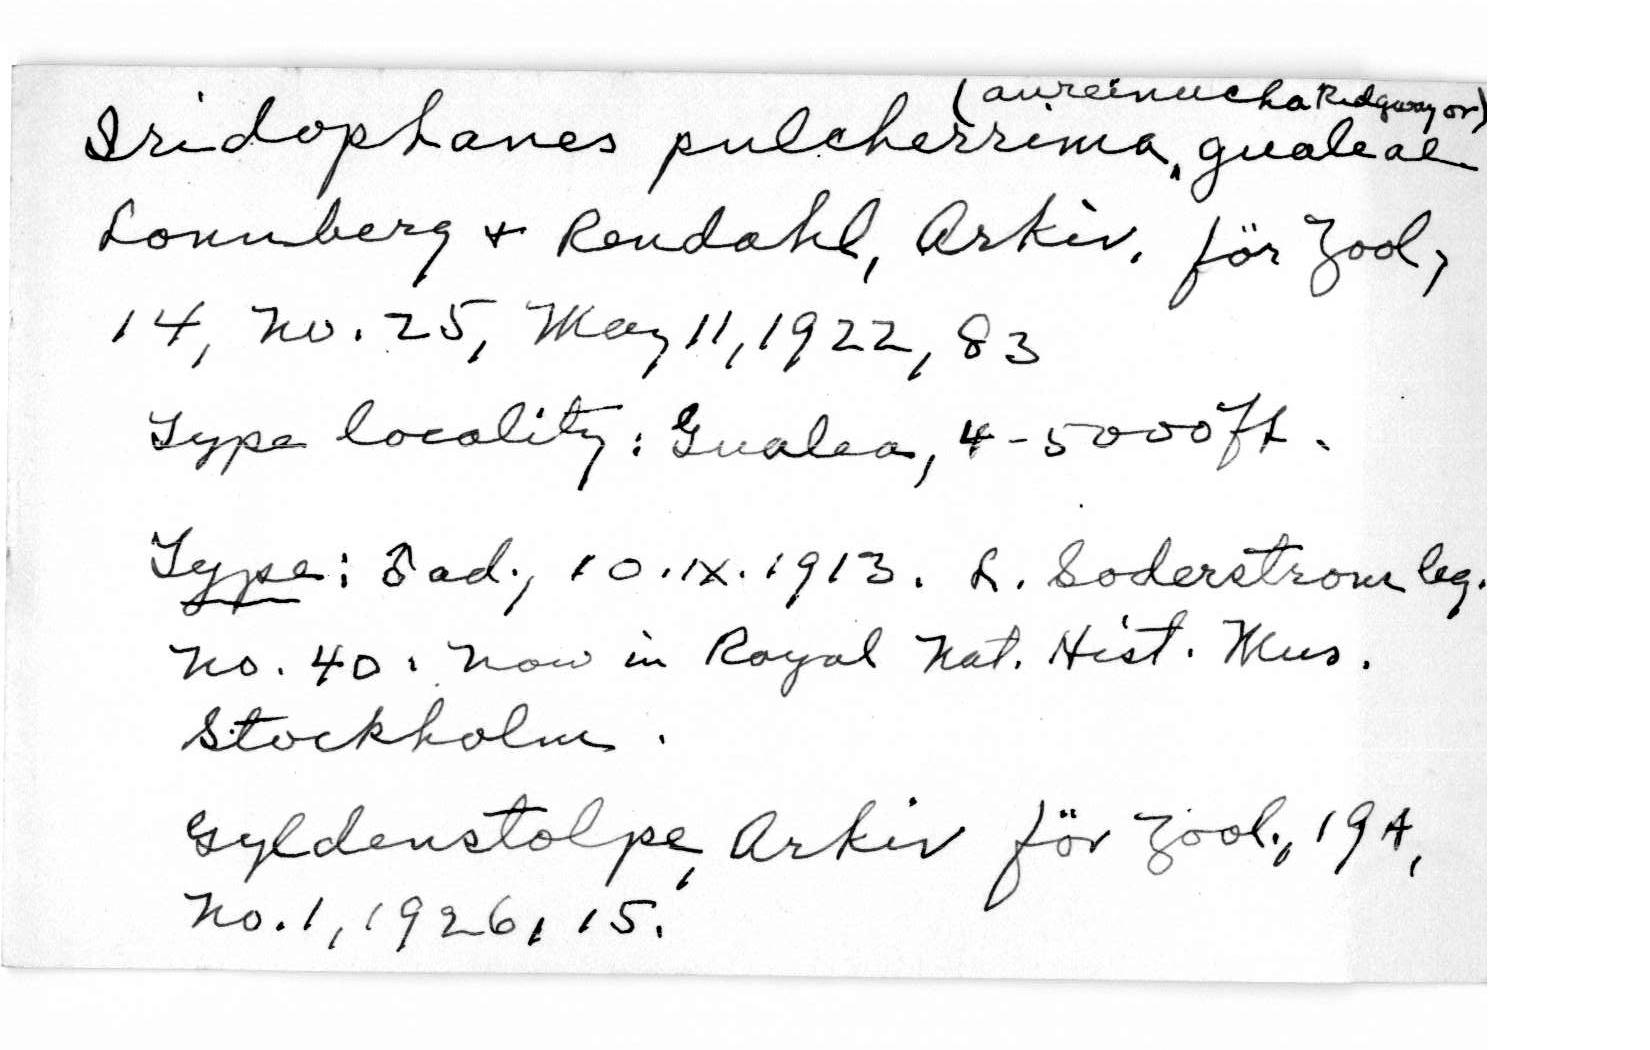 (aureinucha Ridgway or)
Iridophanes pulcherrima gualeae
Lonnberg + Rendahl, Arkiv. för Zool,
14, no. 25, May 11, 1922, 83
Type locality: Gualea, 4-5000 ft.
Type: ♂ ad., 10.IX.1913. L. Soderstrom leg.
No. 40. Now in Royal Nat. Hist. Mus.
Stockholm.
Gyldenstolpe, Arkiv för Zool., 19A,
No. 1, 1926, 15.